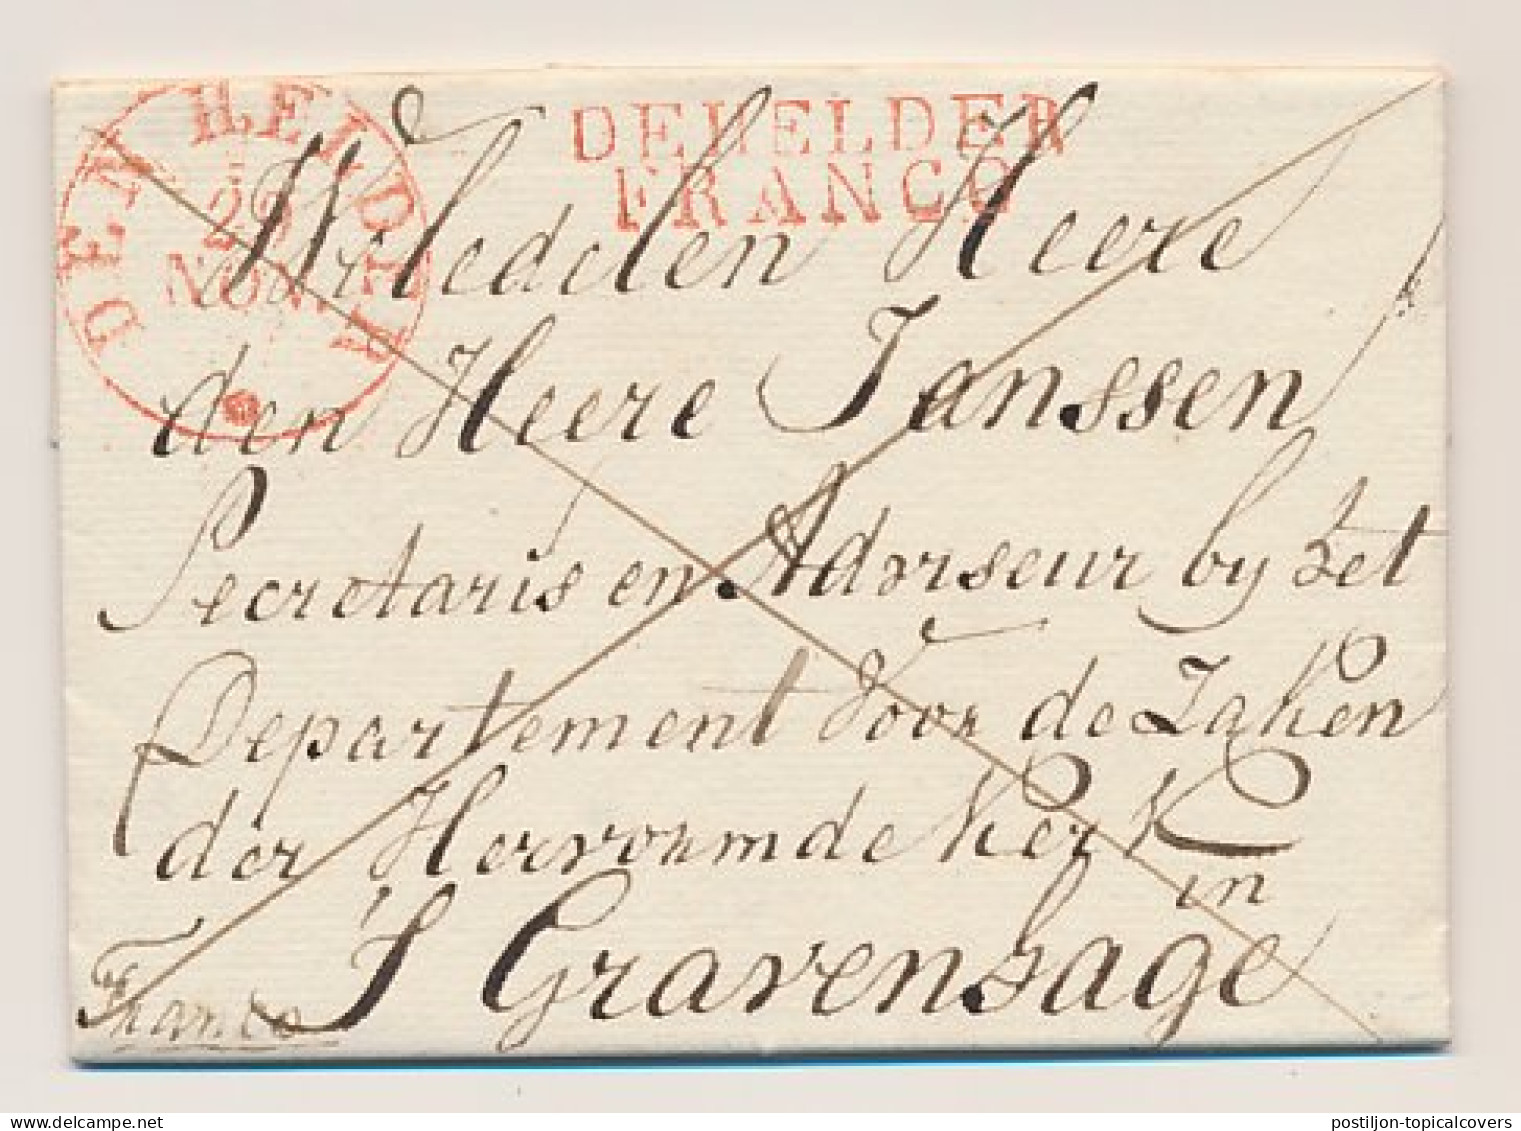 DEN HELDER
29
NOV.
DEHELDER
FRANCO
Weledelen Heere
den Heere Janssen
Secretaris en Adviseur by het
Departement voor de Zaken
der Hervormde Kerk
in
's Gravenhage
Franco
postiljon-topicalcovers